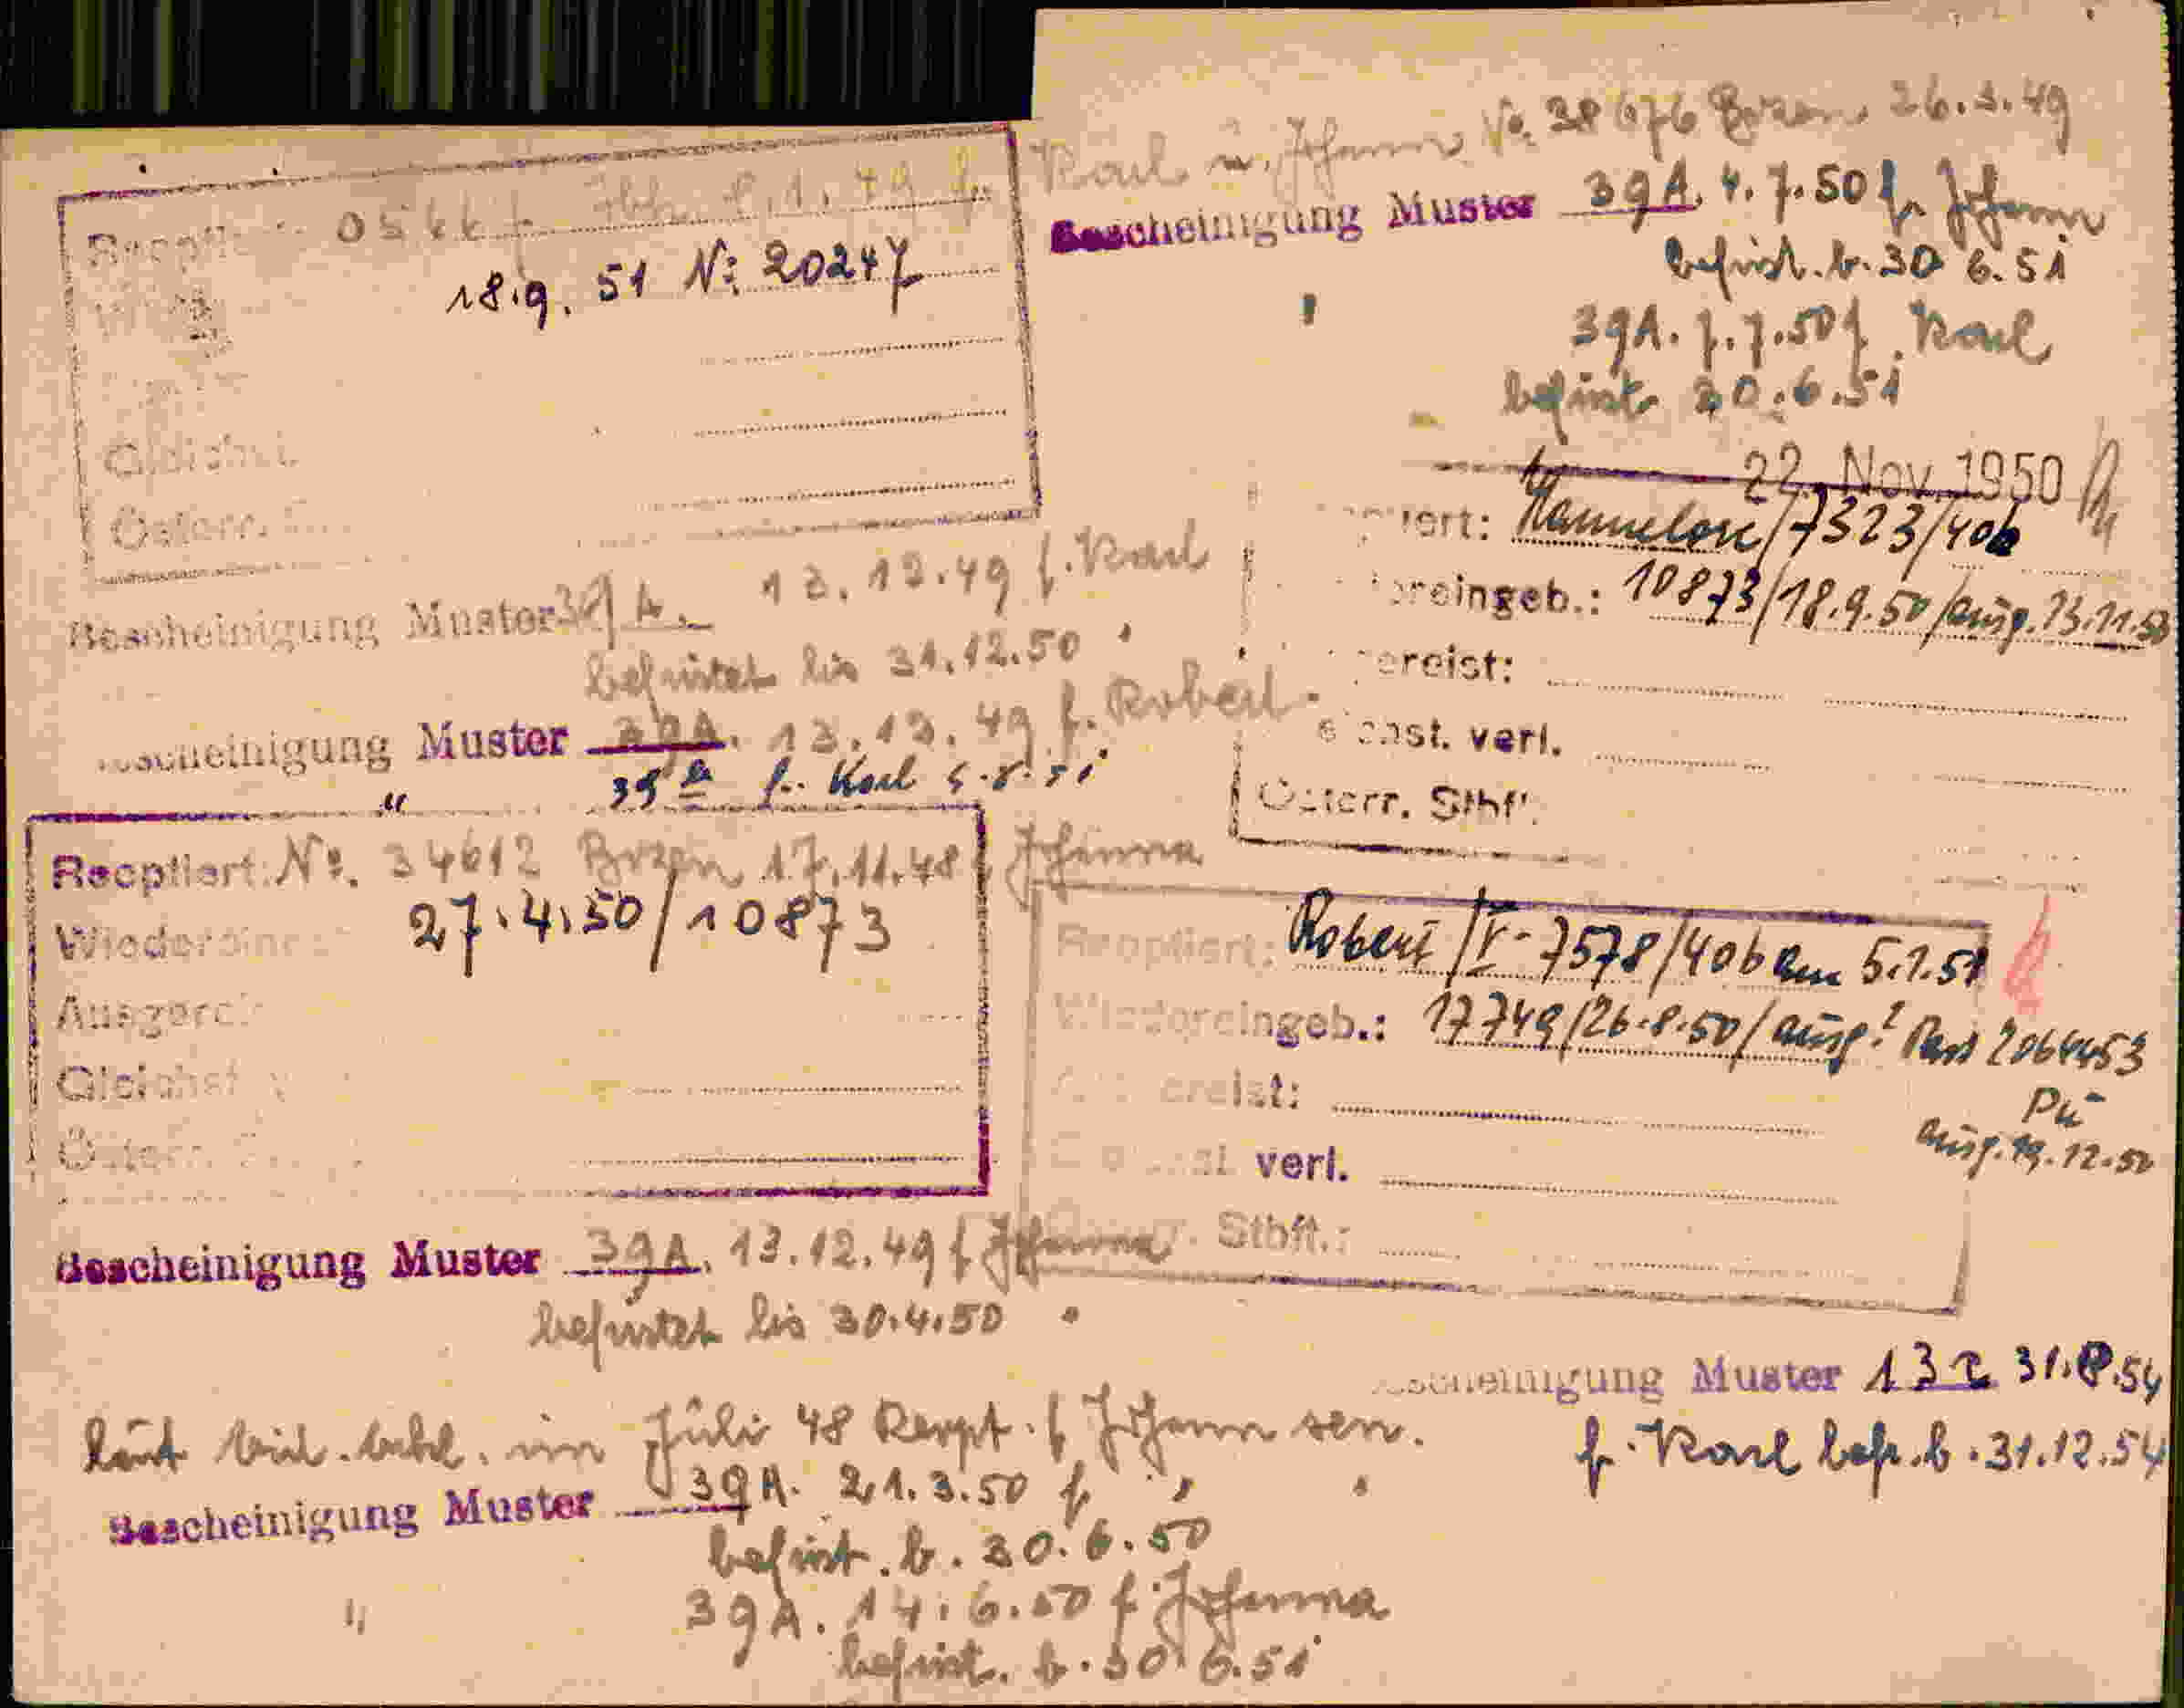 Karl u. Johann No. 38676 Bozen 26.3.49
Bescheinigung Muster 39A. 4.7.50 f. Johann
befrist. b. 30 6.51
39A. 7.7.50 f. Karl
befrist. 30.6.51
22. Nov. 1950
Hannelore/7323/40b
eingeb.: 10873/18.9.50/ausg. 13.11.50
ereist:
verl.
Österr. Stbft.
Reoptiert:
18.9. 51 No 20247
Gleichst.
Österr.
Bescheinigung Muster 39A. 13.12.49 f. Karl
befristet bis 31.12.50
Bescheinigung Muster 39A. 13.12.49 f. Robert
" 39a f. Karl
Reoptiert: No. 34612 Bozen 17.11.48 Johanna
Wiedereingeb. 27.4.50/10873
Ausgereist
Gleichst. v
Österr.
Bescheinigung Muster 39A. 13.12.49 f Johanna
befristet bis 30.4.50
Reoptiert: Robert/V-7578/40b am 5.1.51
Wiedereingeb.: 17749/26.8.50/ausg! Pass 2064453
Pü
ausg. 19.12.50
ereist:
verl.
Stbft.:
Bescheinigung Muster 13 31.8.54
f. Karl befr. b. 31.12.54
laut im Juli 48 Reopt. f Johann sen.
Bescheinigung Muster 39A. 21.3.50 f " "
befrist. b. 30.6.50
39A. 14.6.50 f. Johanna
befrist. b. 30 6.51